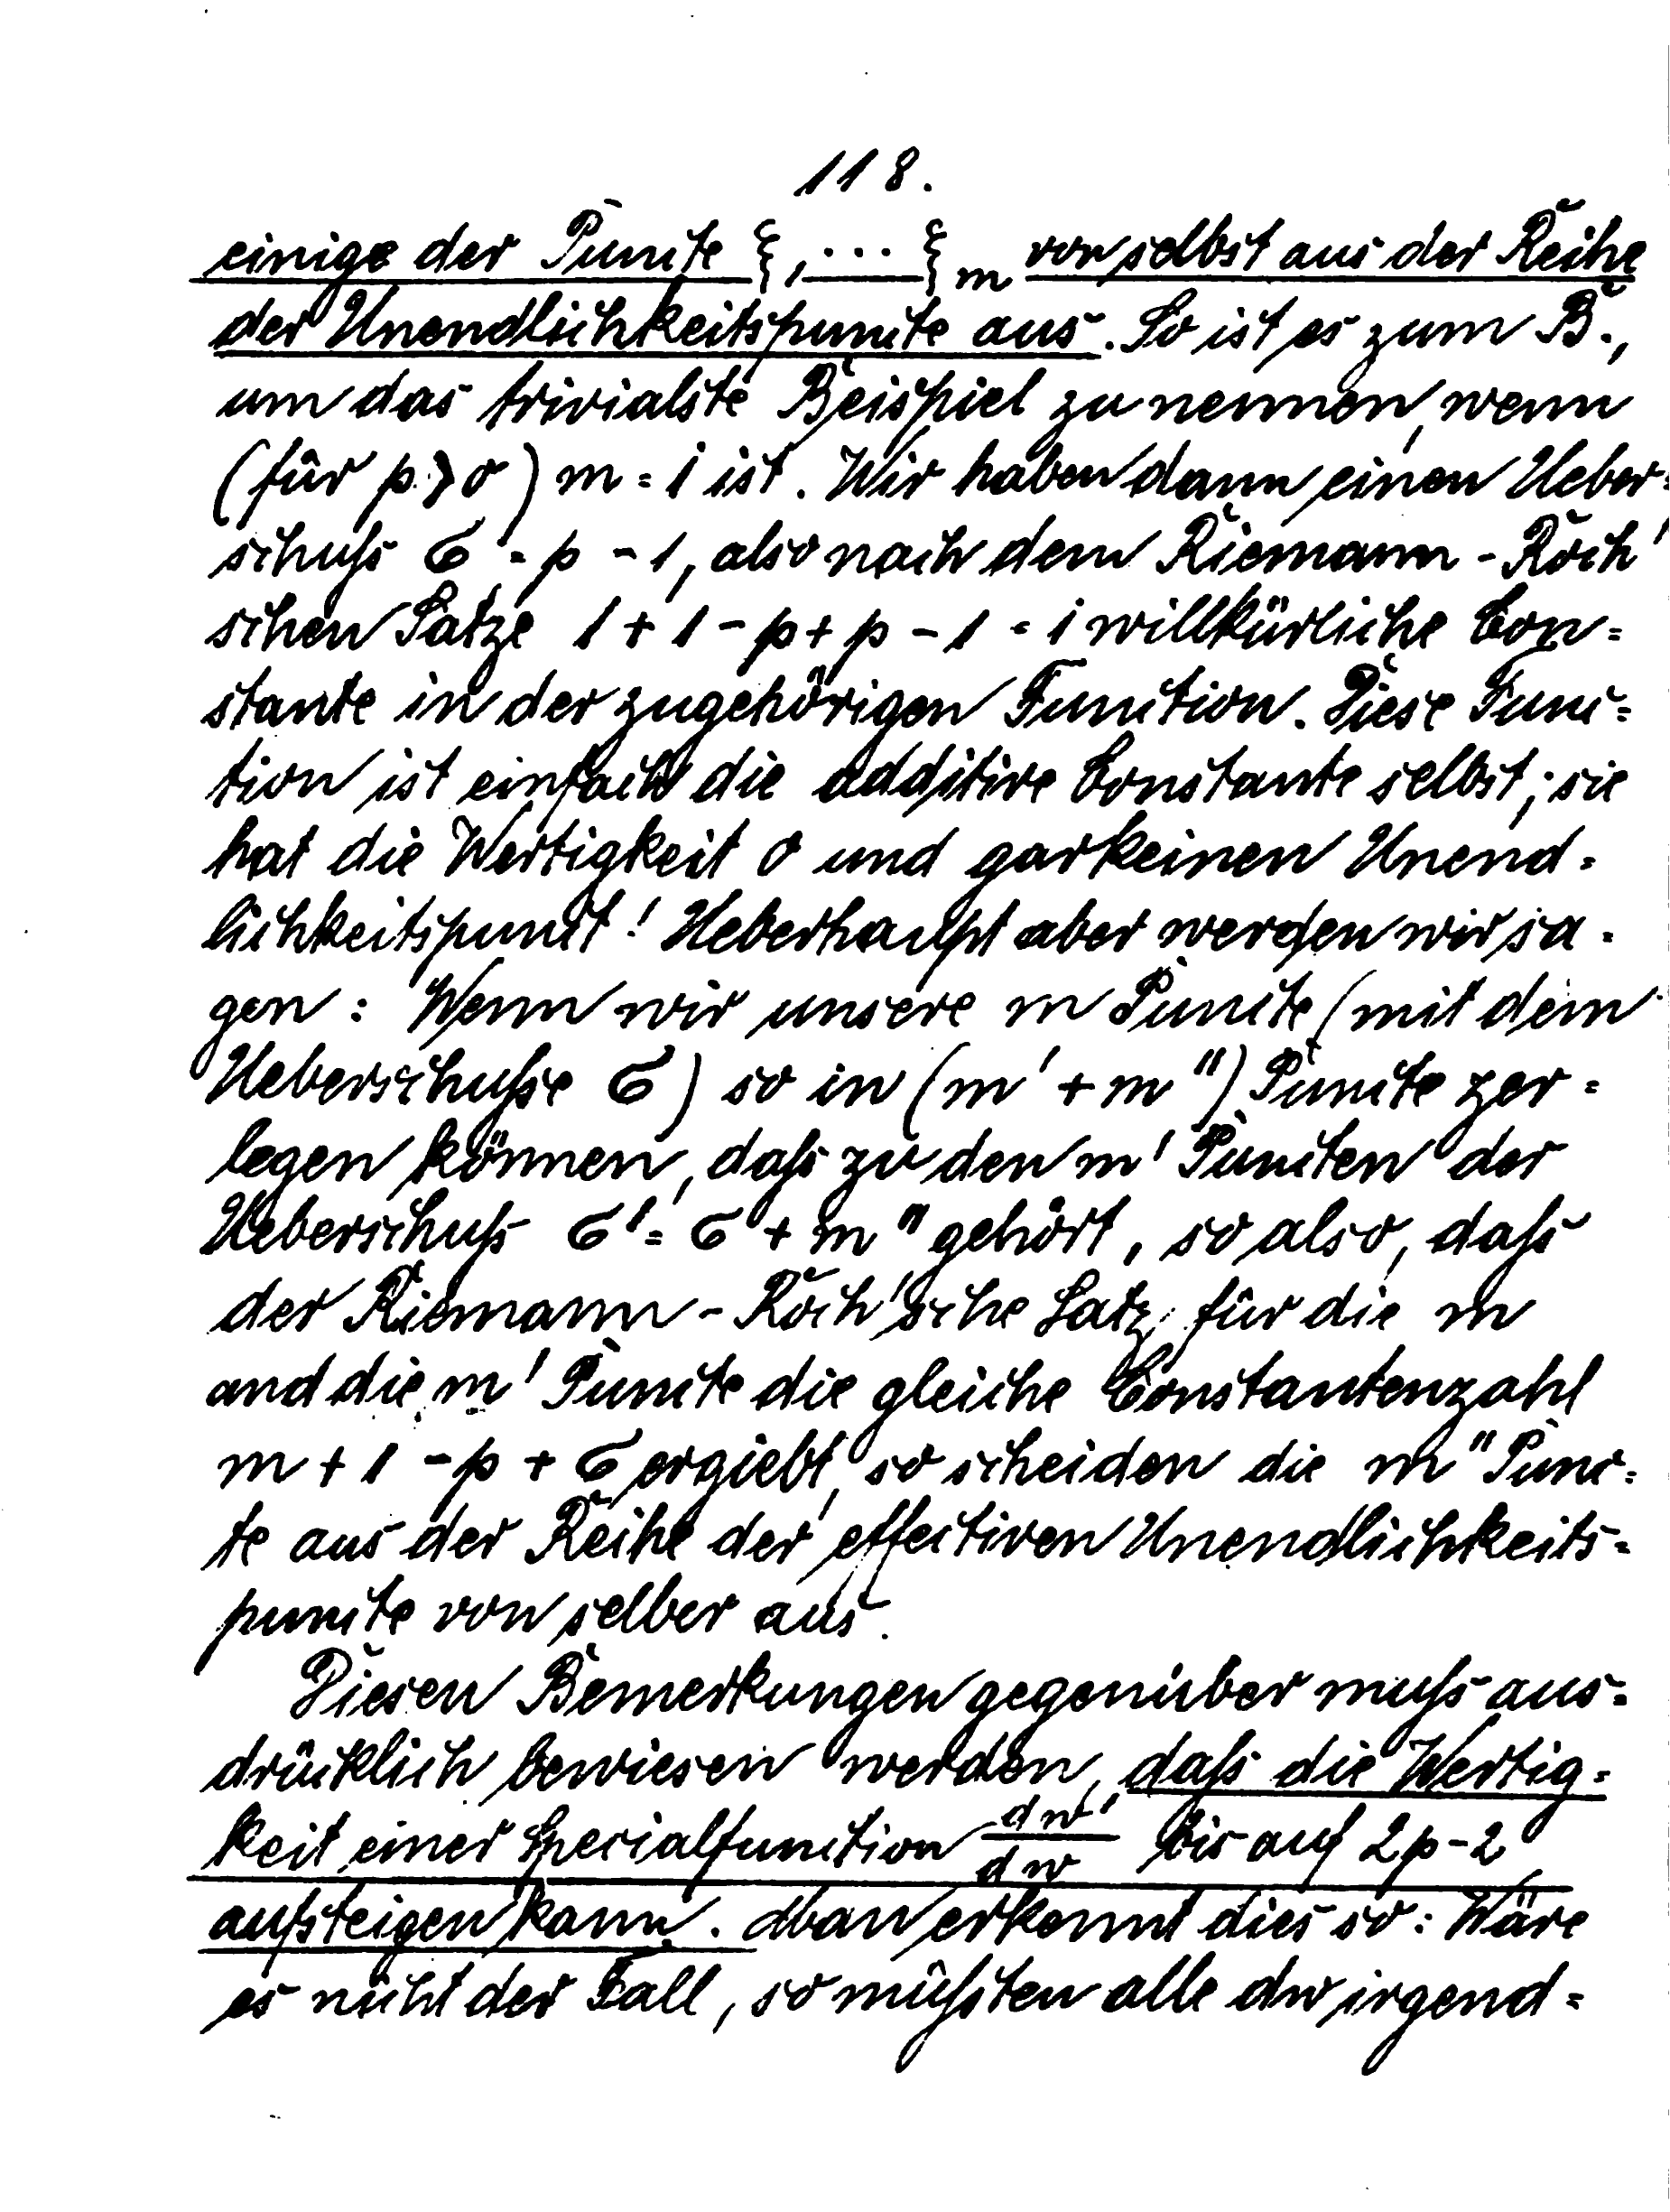 118.
einige der Puncte ξ₁, ... ξₘ von selbst aus der Reihe
der Unendlichkeitspuncte aus. So ist es zum B.,
um das trivialste Beispiel zu nennen, wenn
(für p > 0) m = 1 ist. Wir haben dann einen Ueber=
schuſs σ = p - 1, also nach dem Riemann-Roch'
schen Satze 1 + 1 - p + p - 1 = 1 willkürliche Con=
stante in der zugehörigen Function. Diese Func=
tion ist einfach die additive Constante selbst; sie
hat die Wertigkeit 0 und garkeinen Unend=
lichkeitspunct! Ueberhaupt aber werden wir sa=
gen: Wenn wir unsere m Puncte (mit dem
Ueberschuſse σ) so in (m' + m'') Puncte zer=
legen können, daſs zu den m' Puncten der
Ueberschuſs σ' = σ + m'' gehört, so also, daſs
der Riemann-Roch'sche Satz für die m
und die m' Puncte die gleiche Constantenzahl
m + 1 - p + σ ergiebt, so scheiden die m'' Punc=
te aus der Reihe der effectiven Unendlichkeits=
puncte von selber aus.
Diesen Bemerkungen gegenüber muſs aus=
drücklich bewiesen werden, daſs die Wertig=
keit einer Specialfunction dw'/dw bis auf 2p-2
aufsteigen kann. Man erkennt dies so: Wäre
es nicht der Fall, so müſsten alle dw irgend=